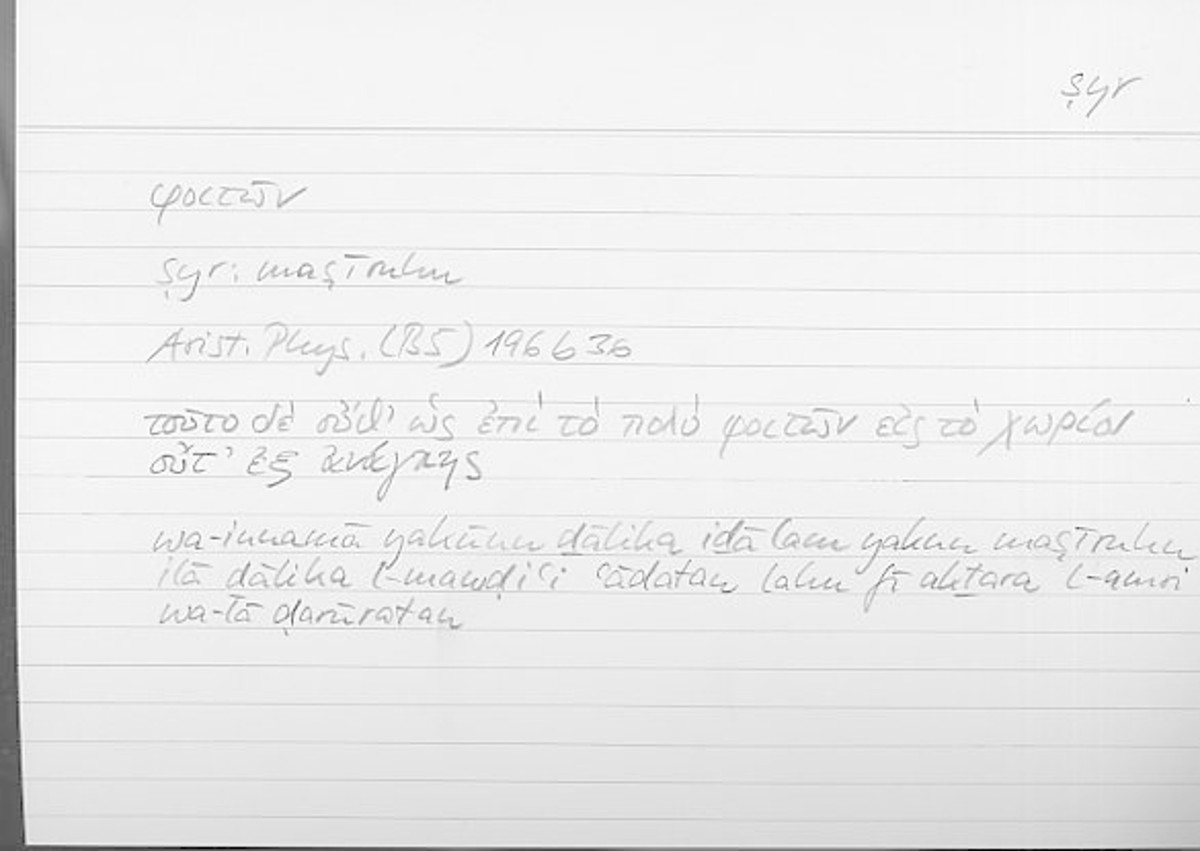 ṣyr
φοιτῶν
ṣyr: maṣīruhu
Arist. Phys. (B5) 196 b 36
τοῦτο δὲ οὔθ' ὡς ἐπὶ τὸ πολὺ φοιτῶν εἰς τὸ χωρίον
οὔτ' ἐξ ἀνάγκης
wa-innamā yakūnu ḏālika iḏā lam yakun maṣīruhu
ilā ḏālika l-mawḍiʿi ʿādatan lahu fī akṯara l-amri
wa-lā ḍarūratan